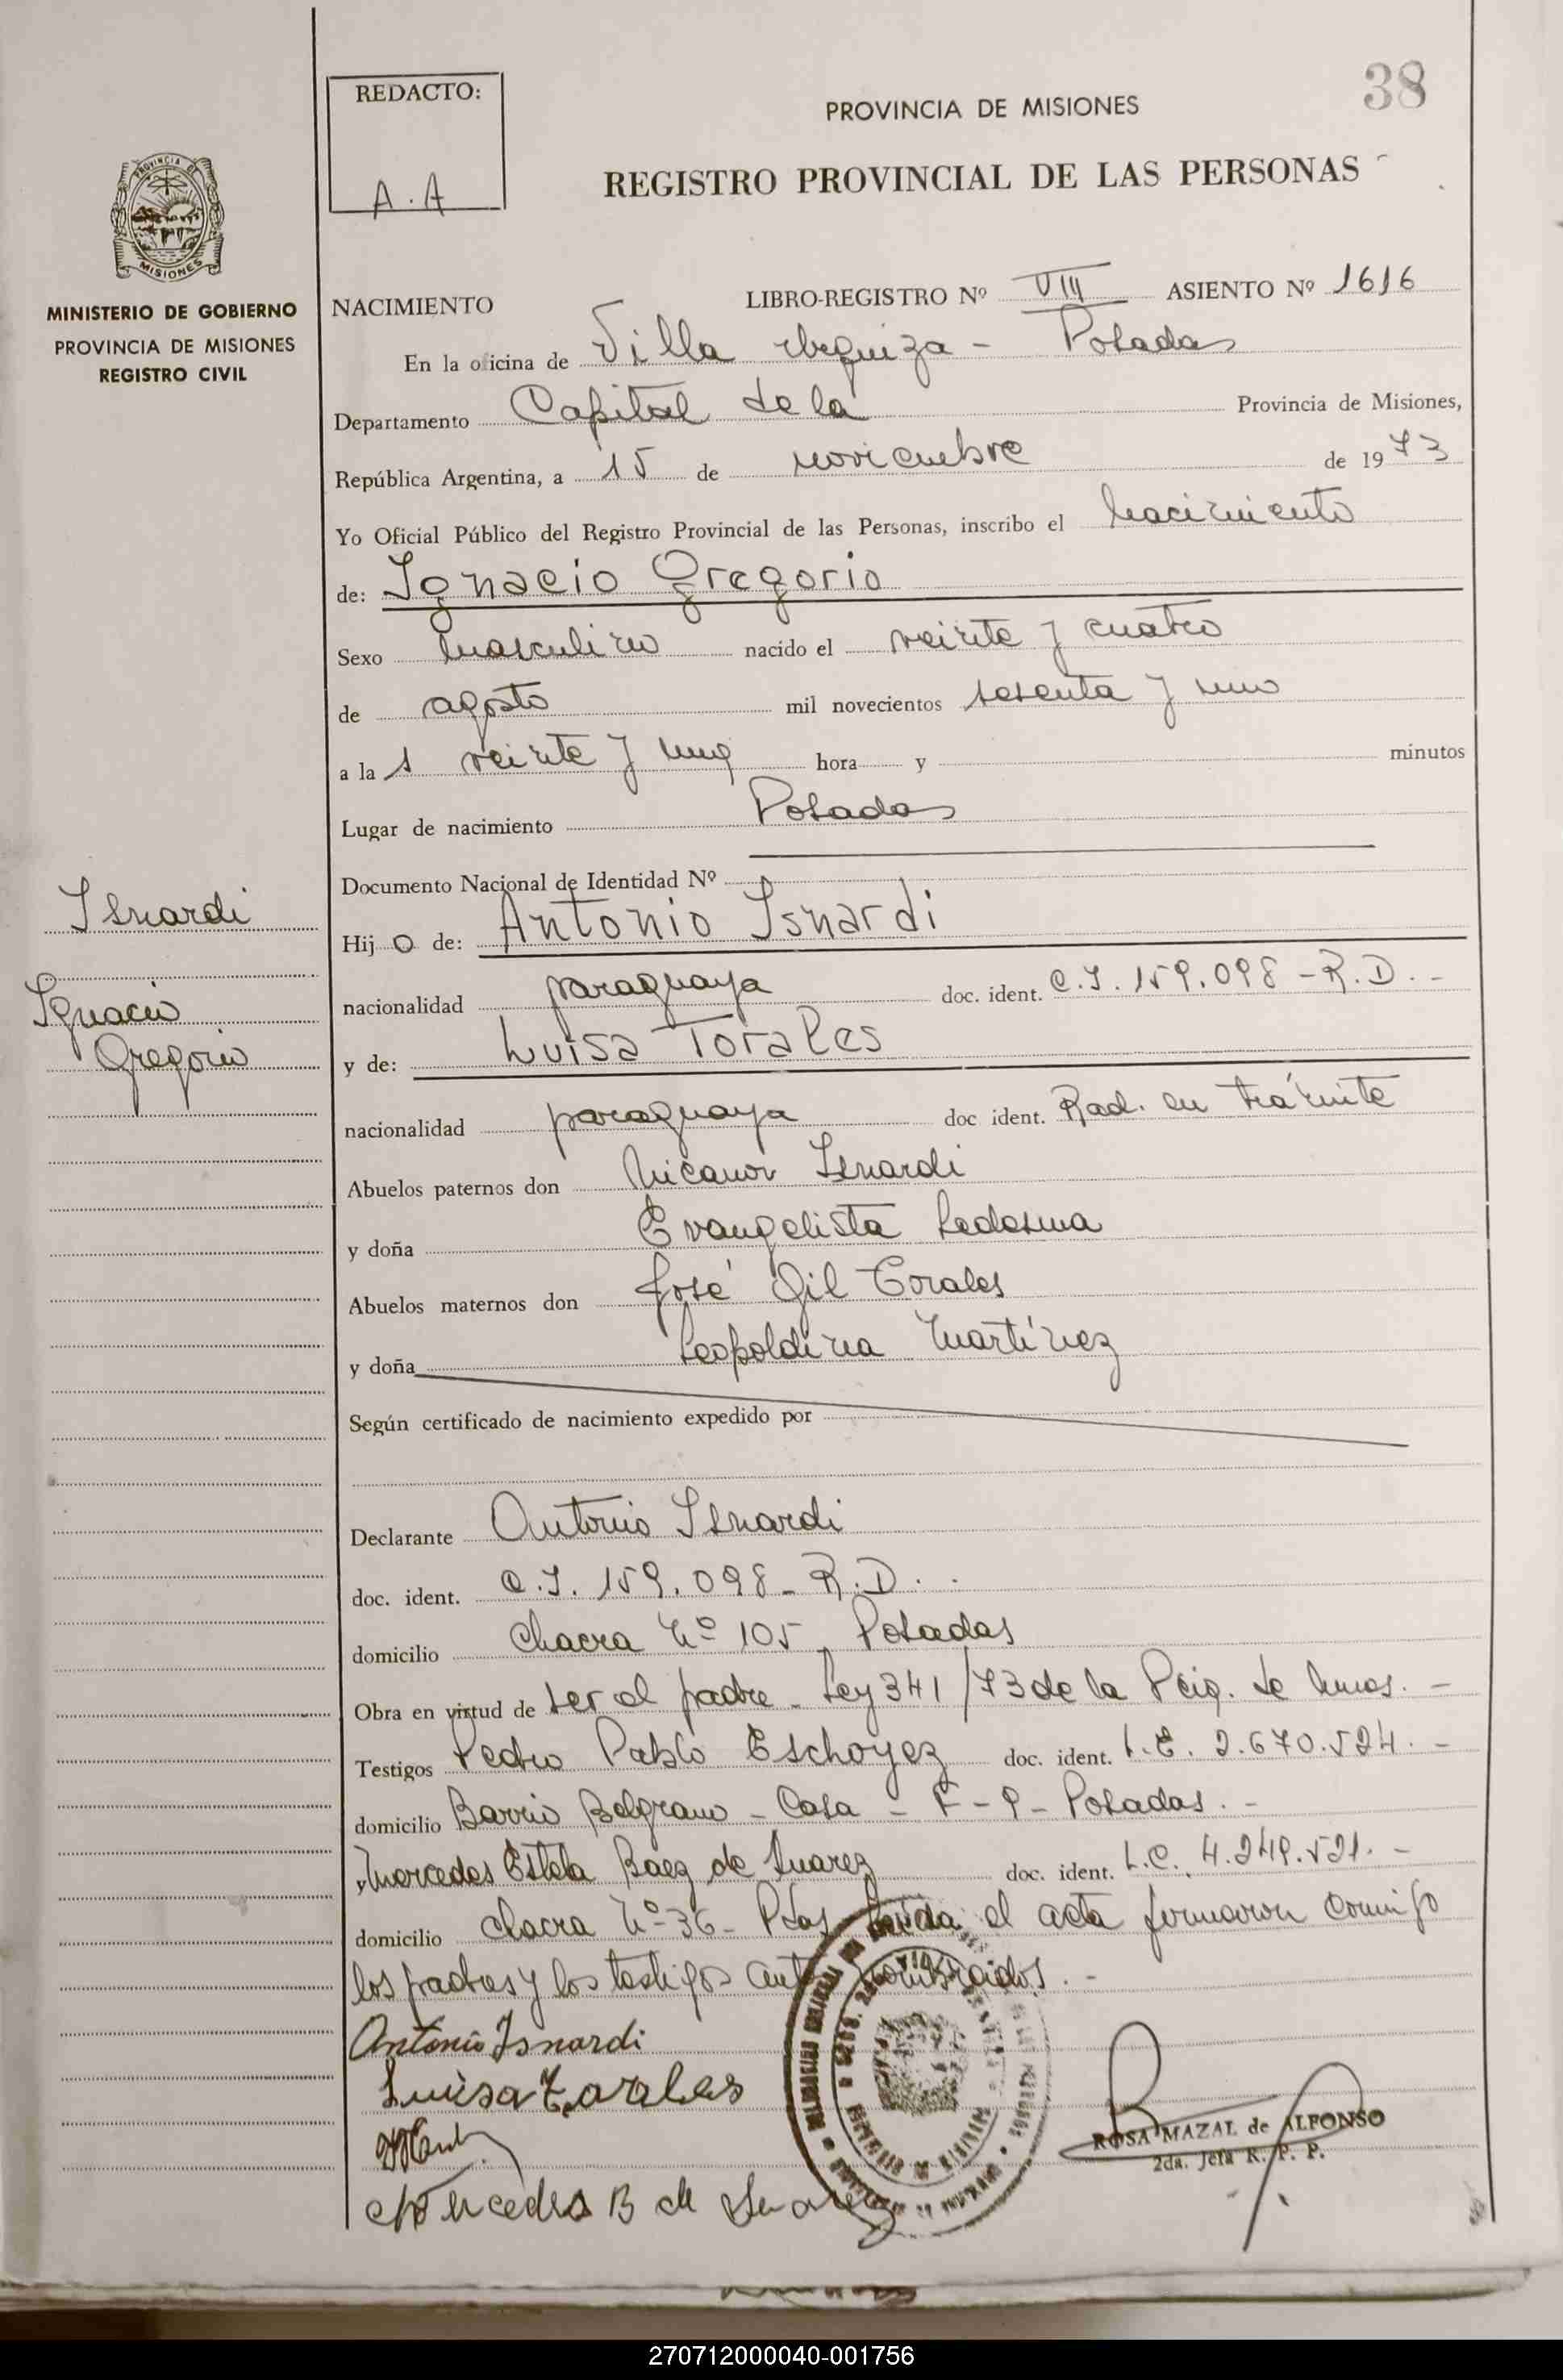 38
REDACTO:
A.A
PROVINCIA DE MISIONES
REGISTRO PROVINCIAL DE LAS PERSONAS
PROVINCIA DE
MISIONES
MINISTERIO DE GOBIERNO
PROVINCIA DE MISIONES
REGISTRO CIVIL
NACIMIENTO LIBRO-REGISTRO Nº VIII ASIENTO Nº 1616
En la oficina de Villa Urquiza - Posadas
Departamento Capital de la Provincia de Misiones,
República Argentina, a 15 de noviembre de 1973
Yo Oficial Público del Registro Provincial de las Personas, inscribo el nacimiento
de: Ignacio Gregorio
Sexo masculino nacido el veinte y cuatro
de agosto mil novecientos sesenta y uno
a la s veinte y una hora y minutos
Lugar de nacimiento Posadas
Documento Nacional de Identidad Nº
Isnardi
Ignacio
Gregorio
Hij o de: Antonio Isnardi
nacionalidad paraguaya doc. ident. C.I. 159.098 - R.D. -
y de: Luisa Torales
nacionalidad paraguaya doc ident. Rad. en trámite
Abuelos paternos don Nicanor Isnardi
y doña Evangelista Ledesma
Abuelos maternos don José Gil Torales
y doña Leopoldina Martínez
Según certificado de nacimiento expedido por
Declarante Antonio Isnardi
doc. ident. C.I. 159.098 - R.D.
domicilio Chacra Nº 105 Posadas
Obra en virtud de ser el padre - Ley 341/73 de la Pcia. de Mnes. -
Testigos Pedro Pablo Eschoyez doc. ident. L.E. 2.670.524. -
domicilio Barrio Belgrano - Casa - F - 9 - Posadas. -
y Mercedes Estela Baez de Suarez doc. ident. L.C. 4.249.521. -
domicilio chacra Nº 36 - Pdas leída el acta firmaron conmigo
los padres y los testigos antes nombrados. -
Antonio Isnardi
Luisa Torales
Mercedes B de Suarez
ROSA MAZAL de ALFONSO
2da. Jefa R. P. P.
270712000040-001756